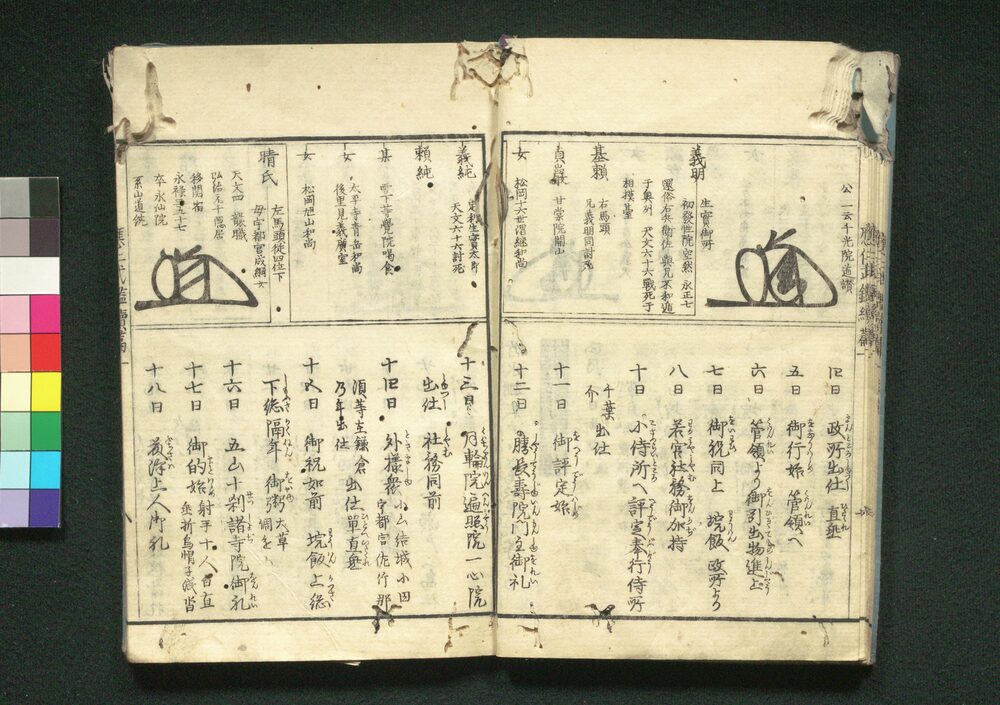 公一云千光院道讃
義明
生實御所
初發性院空然 永正七
還俗右兵衛佐 與兄不和逃
于奥州 天文六十六戰死于
相模臺
基頼
右馬頭
兄義明同討死
貞巖 甘棠院開山
女 松岡十六世渭継和尚
四日 政所出仕 直垂
五日 御行始 管領へ
六日 管領より御引出物進上
七日 御祝同上 垸飯 政所より
八日 若宮社務御加持
十日 小侍所へ評定奉行侍所
千葉介出仕
十一日 御評定始
十二日 勝長壽院門主御礼
義純 足利生實太郎
天文六十六討死
頼純
某 雪下等覺院喝食
女 太平寺青岳和尚
後里見義廣室
女 松岡旭山和尚
晴氏
左馬頭従四位下
母宇都宮成綱女
天文四 襲職
弘治元十
移関宿
永禄三五廿七
卒 永仙院
系山道統
十三日 月輪院遍照院一心院
出仕 社務同前
十四日 外様衆 小山結城小田
宇都宮佐竹那
須等在鎌倉出仕單直垂
乃年出仕
十五日 御祝如前 垸飯上総
下総隔年 御粥 大草
調を
十六日 五山十刹諸寺院御礼
十七日 御的始射手十人各直
垂折烏帽子浅沓
十八日 遊行上人御礼